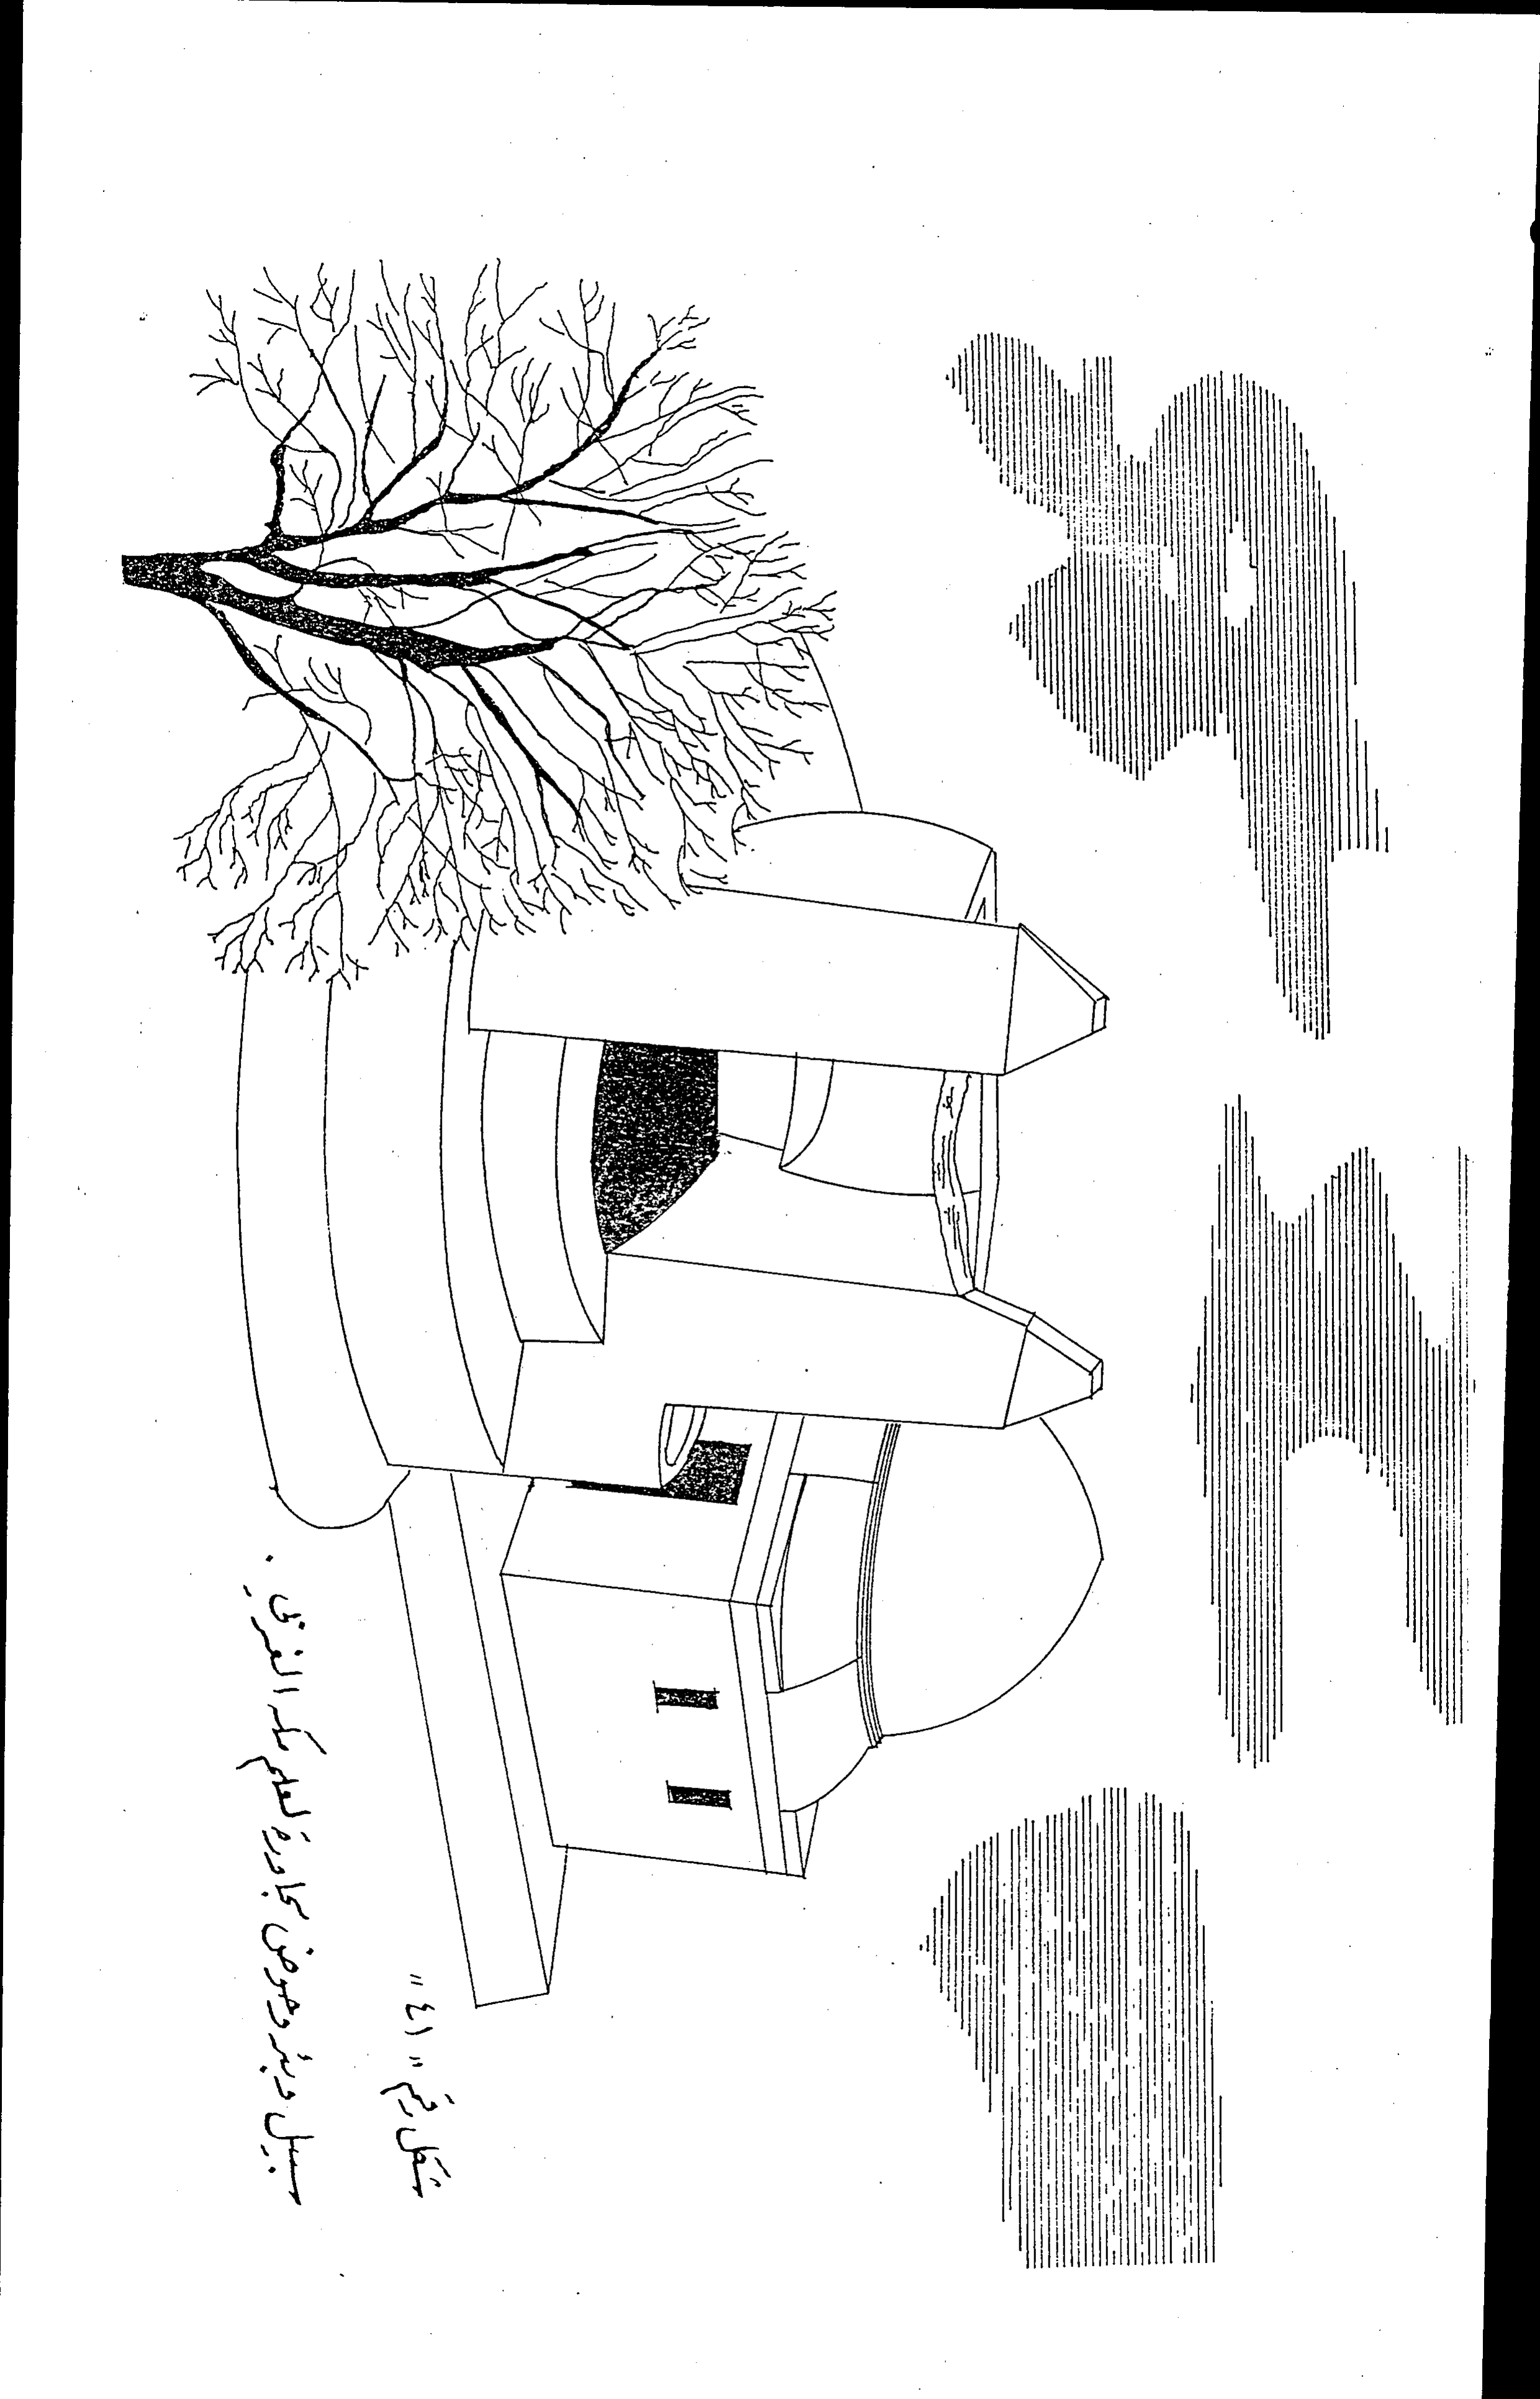 شكل رقم " ٤١ "
سبيل وبئر وحوض مجاورة لعلم مكة الغربي .